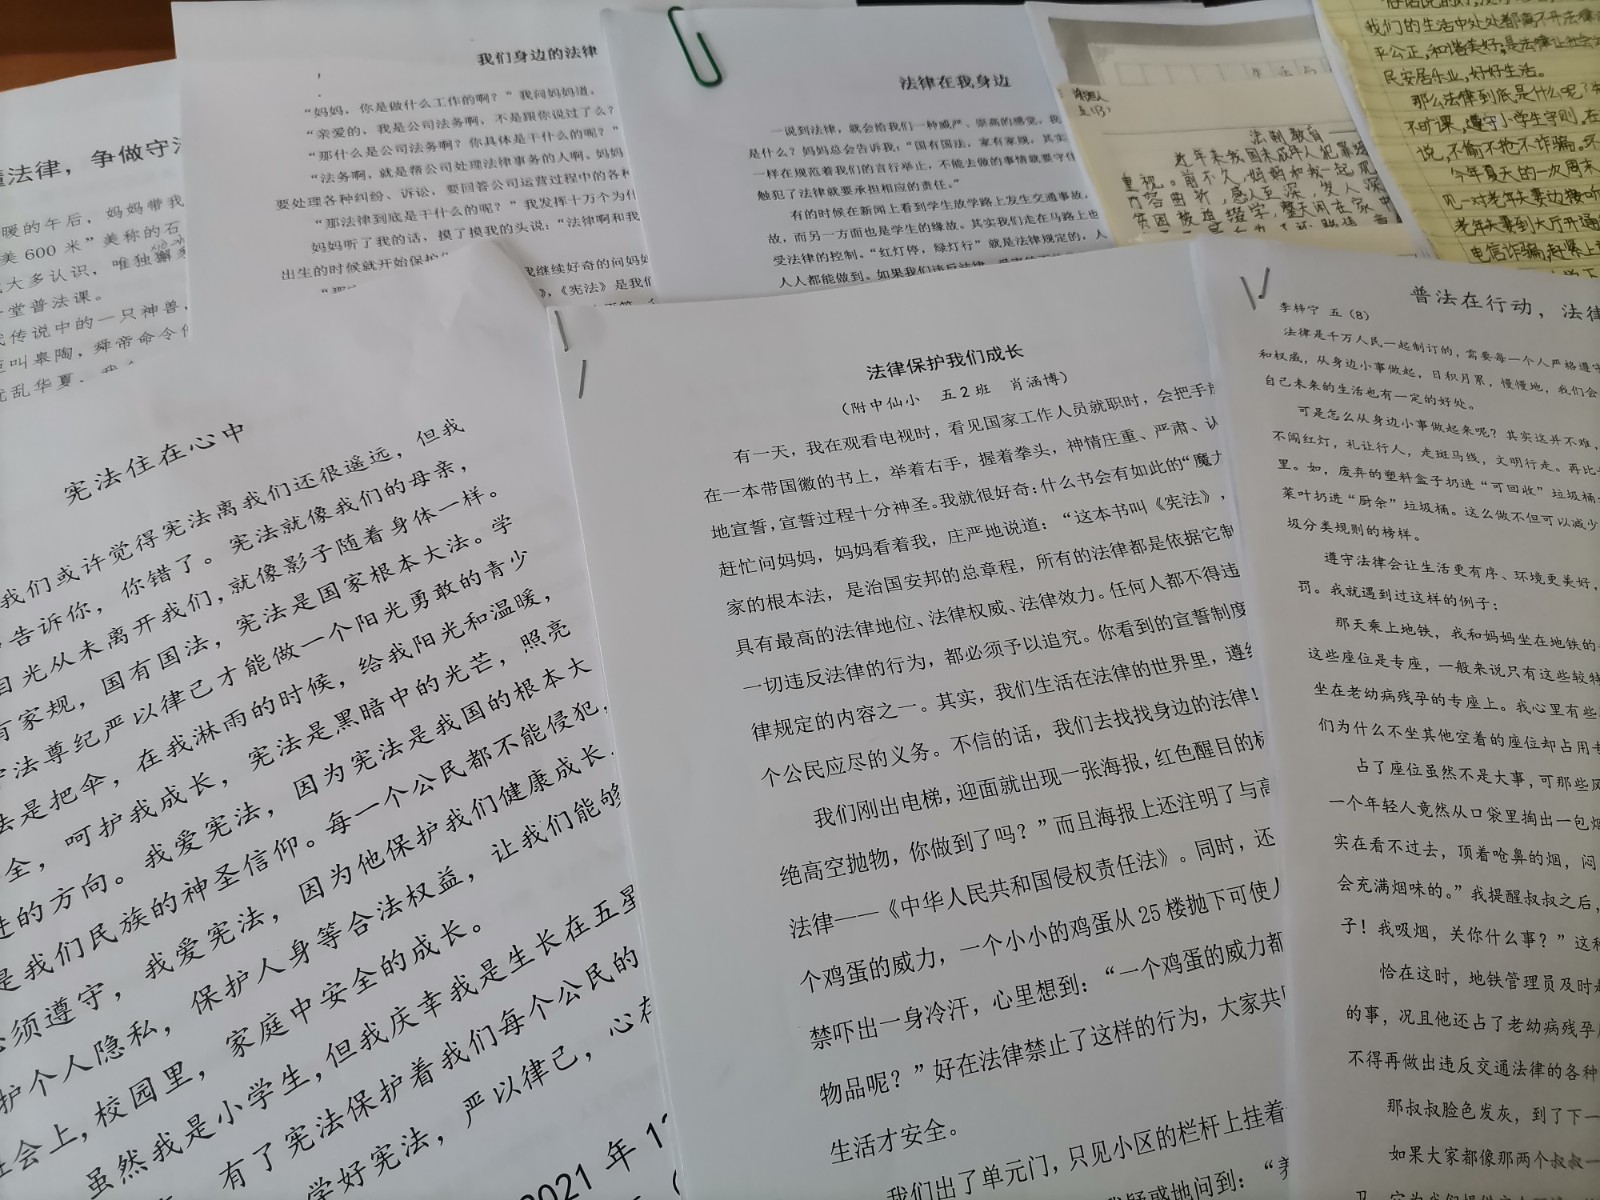 法律，争做守
暖的午后，妈妈带我
美600米”美称的石
大多认识，唯独獬
堂普法课。
传说中的一只神兽，
叫皋陶，舜帝命令
乱华夏、
我们身边的法律
“妈妈，你是做什么工作的啊？”我问妈妈道。
“亲爱的，我是公司法务啊，不是跟你说过了么？
“那什么是公司法务啊？你具体是干什么的呢？”
“法务啊，就是帮公司处理法律事务的人啊。妈妈
要处理各种纠纷、诉讼，要回答公司运营过程中的各种
“那法律到底是干什么的呢？”我发挥十万个为什
妈妈听了我的话，摸了摸我的头说：“法律啊和我
出生的时候就开始保护
我继续好奇的问妈妈
，《宪法》是我们
法律在我身边
一说到法律，就会给我们一种威严、崇高的感觉，我
是什么？妈妈总会告诉我：“国有国法，家有家规，其实
一样在规范着我们的言行举止，不能去做的事情就要守住
触犯了法律就要承担相应的责任。”
有的时候在新闻上看到学生放学路上发生交通事故，
故，而另一方面也是学生的缘故。其实我们走在马路上也
受法律的控制。“红灯停，绿灯行”就是法律规定的，人
人人都能做到。如果我们违反法律，
法制教育
近年来我国未成年人犯罪
重视。前不久，妈妈和我一起观
内容曲折，感人至深，发人深
贫困被迫辍学，整天闲在家中
我们的生活中处处都离不开法律
平公正，和谐美好；是法律让社会
民安居乐业，好好生活。
那么法律到底是什么呢？
不旷课，遵守小学生守则，在
说，不偷不抢不诈骗。
今年夏天的一次周末
见一对老年夫妻边接听
老年夫妻到大厅开通
电信诈骗，赶紧上
宪法住在心中
我们或许觉得宪法离我们还很遥远，但我
告诉你，你错了。宪法就像我们的母亲，
目光从未离开我们，就像影子随着身体一样。
有家规，国有国法，宪法是国家根本大法。学
守法尊纪严以律己才能做一个阳光勇敢的青少
法是把伞，在我淋雨的时候，给我阳光和温暖，
全，呵护我成长，宪法是黑暗中的光芒，照亮
进的方向。我爱宪法，因为宪法是我国的根本大
是我们民族的神圣信仰。每一个公民都不能侵犯，
必须遵守，我爱宪法，因为他保护我们健康成长，
护个人隐私，保护人身等合法权益，让我们能够
社会上，校园里，家庭中安全的成长。
虽然我是小学生，但我庆幸我是生长在五星
有了宪法保护着我们每个公民的
学好宪法，严以律己，心存
2021年1
法律保护我们成长
（附中仙小 五2班 肖涵博）
有一天，我在观看电视时，看见国家工作人员就职时，会把手放
在一本带国徽的书上，举着右手，握着拳头，神情庄重、严肃、认
地宣誓，宣誓过程十分神圣。我就很好奇：什么书会有如此的“魔力
赶忙问妈妈，妈妈看着我，庄严地说道：“这本书叫《宪法》，
家的根本法，是治国安邦的总章程，所有的法律都是依据它制
具有最高的法律地位、法律权威、法律效力。任何人都不得违
一切违反法律的行为，都必须予以追究。你看到的宣誓制度
律规定的内容之一。其实，我们生活在法律的世界里，遵
个公民应尽的义务。不信的话，我们去找找身边的法律！
我们刚出电梯，迎面就出现一张海报，红色醒目的标
绝高空抛物，你做到了吗？”而且海报上还注明了与高
法律——《中华人民共和国侵权责任法》。同时，还
个鸡蛋的威力，一个小小的鸡蛋从25楼抛下可使人
禁吓出一身冷汗，心里想到：“一个鸡蛋的威力都
物品呢？”好在法律禁止了这样的行为，大家共
生活才安全。
我们出了单元门，只见小区的栏杆上挂着
疑惑地问到：“
普法在行动，法律
李梓宁 五（8）
法律是千万人民一起制订的，需要每一个人严格遵守
和权威，从身边小事做起，日积月累，慢慢地，我们会
自己未来的生活也有一定的好处。
可是怎么从身边小事做起来呢？其实这并不难，
不闯红灯，礼让行人，走斑马线，文明行走。再比
里。如，废弃的塑料盒子扔进“可回收”垃圾桶
菜叶扔进“厨余”垃圾桶。这么做不但可以减少
圾分类规则的榜样。
遵守法律会让生活更有序、环境更美好，
罚。我就遇到过这样的例子：
那天乘上地铁，我和妈妈坐在地铁的
这些座位是专座，一般来说只有这些较特
坐在老幼病残孕的专座上。我心里有些
们为什么不坐其他空着的座位却占用专
占了座位虽然不是大事，可那些
一个年轻人竟然从口袋里掏出一包烟
实在看不过去，顶着呛鼻的烟，闷
会充满烟味的。”我提醒叔叔之后，
子！我吸烟，关你什么事？”这种
恰在这时，地铁管理员及时
的事，况且他还占了老幼病残孕
不得再做出违反交通法律的各种
那叔叔脸色发灰，到了下一
如果大家都像那两个叔叔一